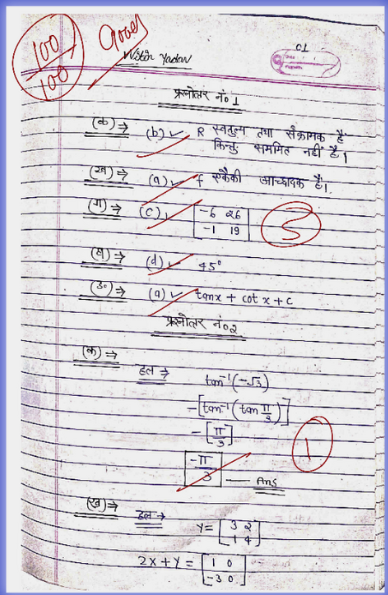 100/100 Good
Nitin Yadav
01
प्रश्नोत्तर नं० 1
(क) ⇒ (b) ✓ R स्वतुल्य तथा संक्रामक है
किन्तु सममित नहीं है।
(ख) ⇒ (a) ✓ f एकैकी आच्छादक है।
(ग) ⇒ (c) ✓ [-6 26
-1 19] 5
(घ) ⇒ (d) ✓ 45°
(ङ) ⇒ (a) ✓ tanx + cotx + c
प्रश्नोत्तर नं० 2
(क) ⇒
हल ⇒ tan⁻¹(-√3)
-[tan⁻¹(tan π/3)]
-[π/3]
-π/3 Ans 1
(ख) ⇒
हल ⇒ Y = [3 2
1 4]
2X + Y = [1 0
-3 0]